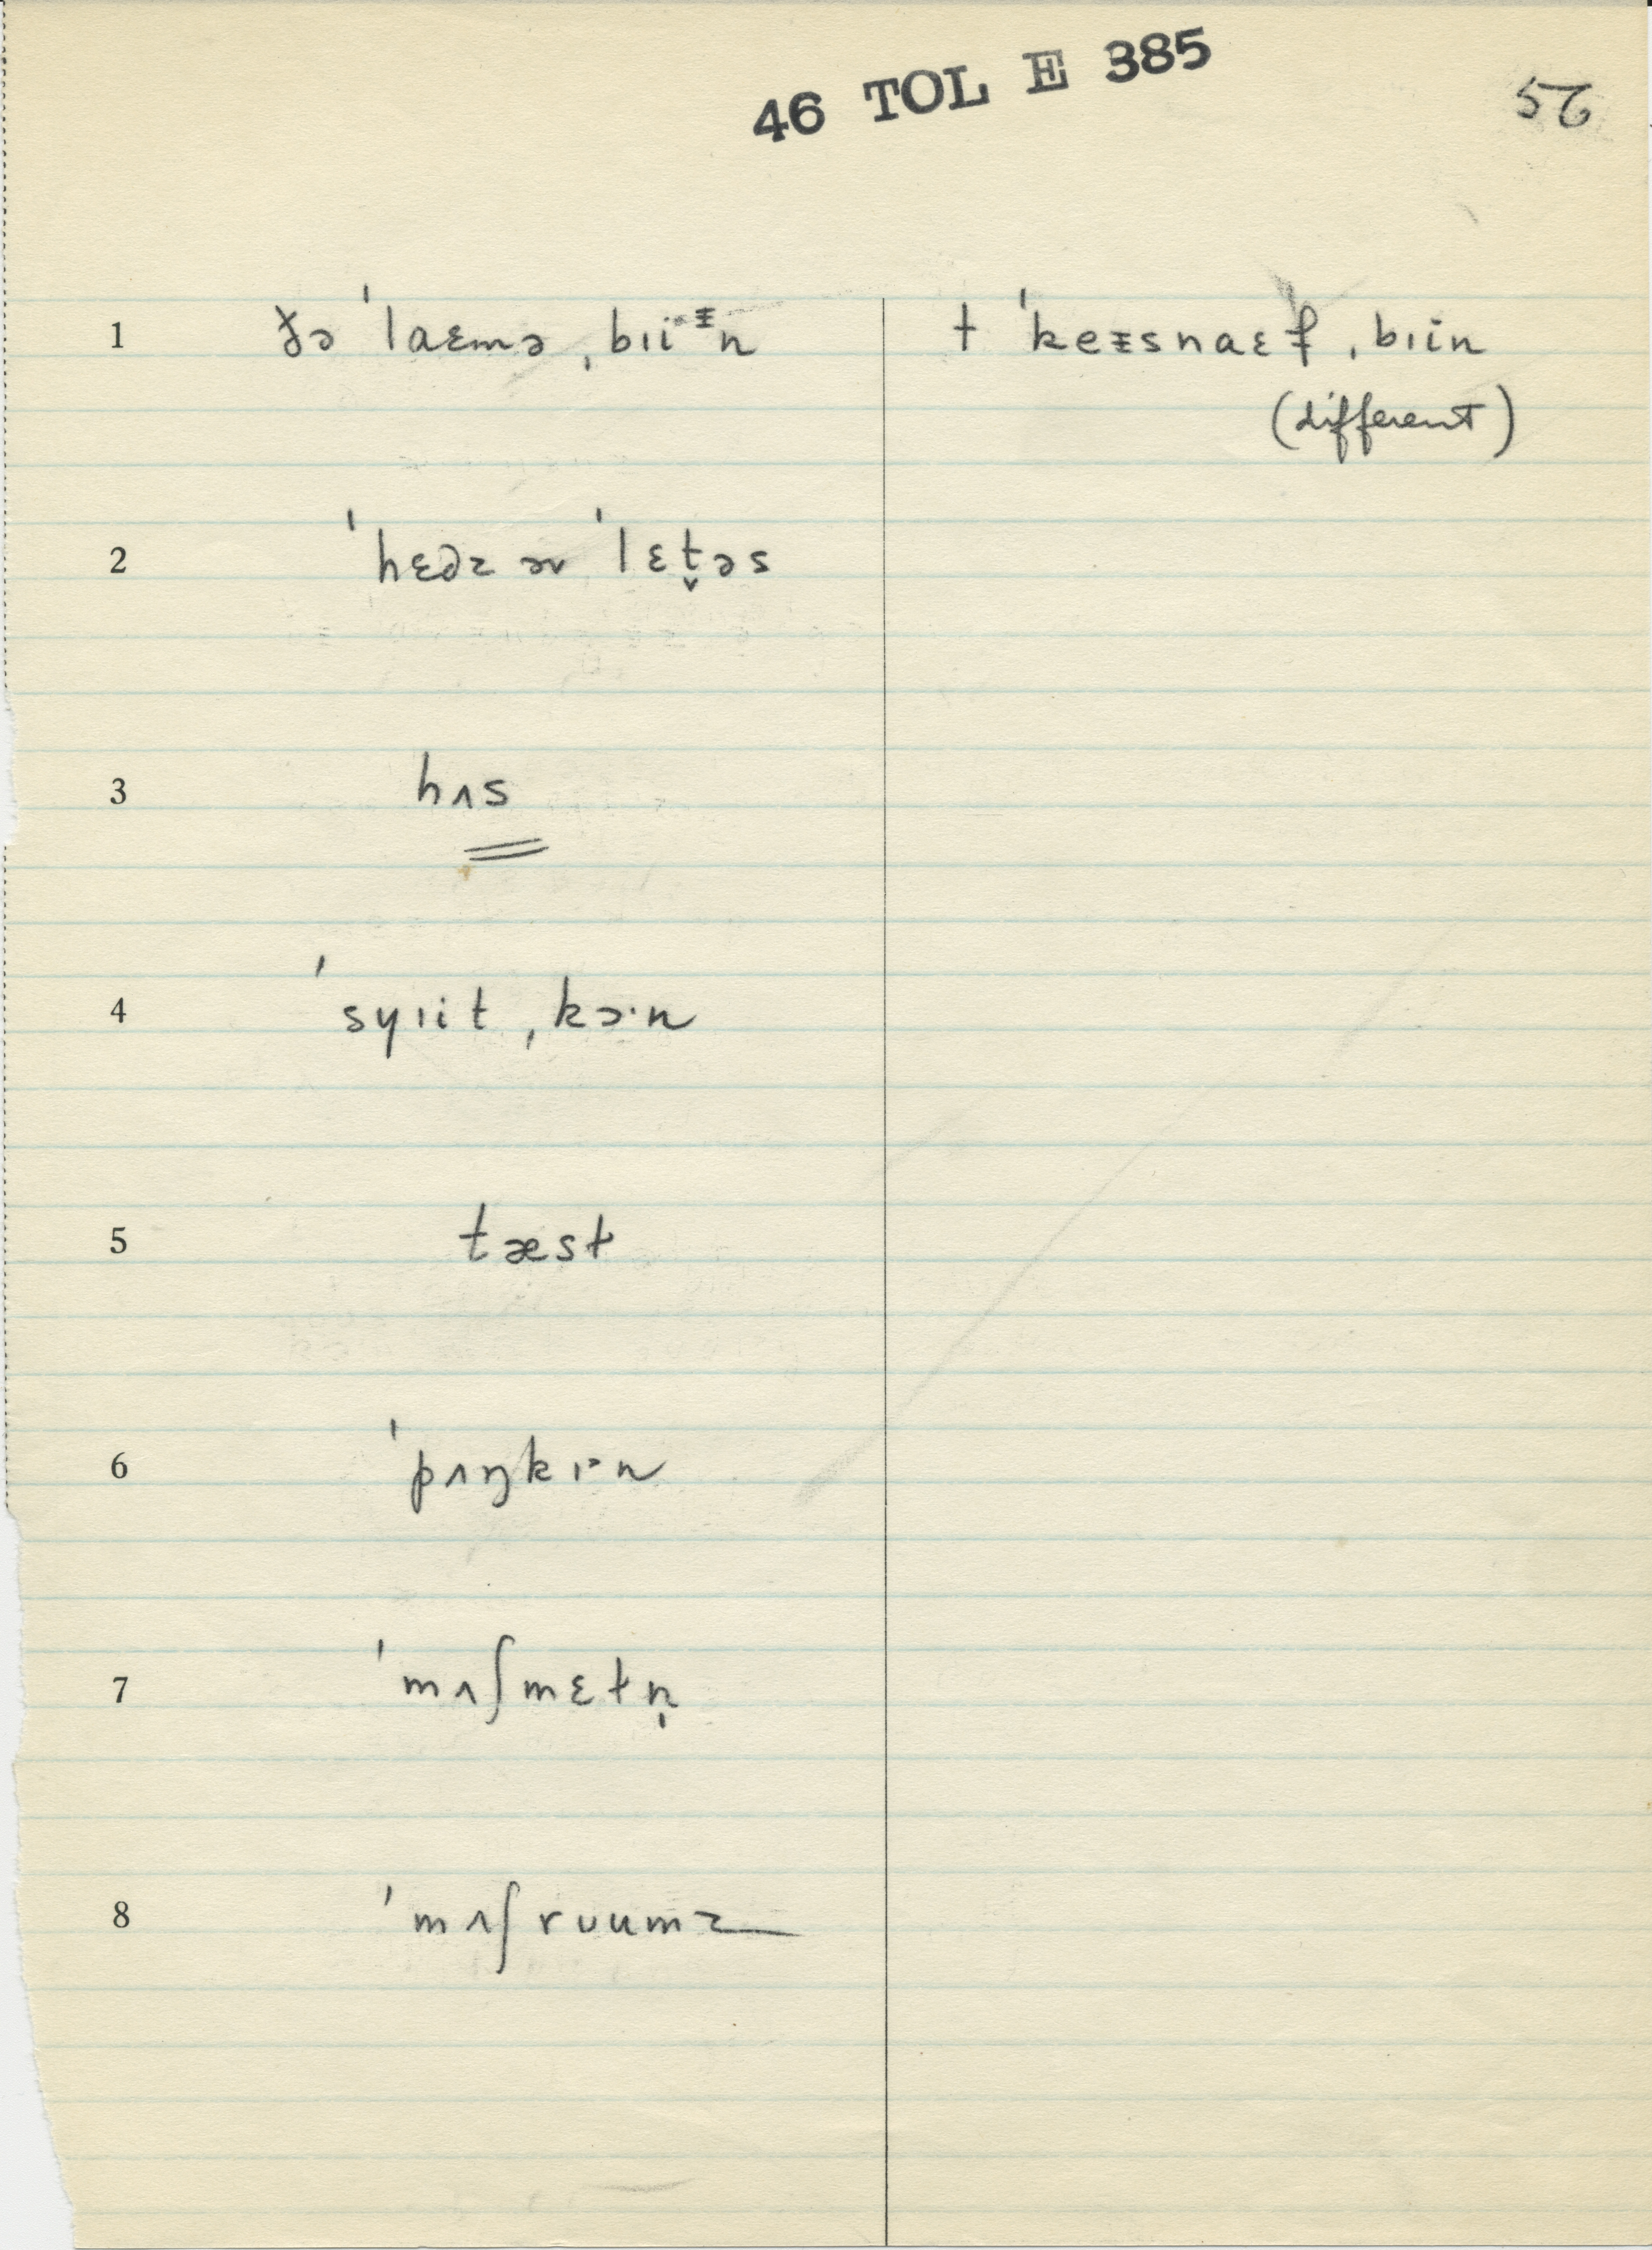 46 TOL E 385
56
1 ðə ˈlaɛmə ˌbɪiᵻn
t ˈkeᵻsnaɛf ˌbɪin
(different)
2 ˈhɛdz əv ˈlɛt̬əs
3 hʌs
4 ˈsyɪit ˌkɔ·n
5 tæst
6 ˈpʌŋkɪ·n
7 ˈmʌʃmɛtn̩
8 ˈmʌʃrʊumz